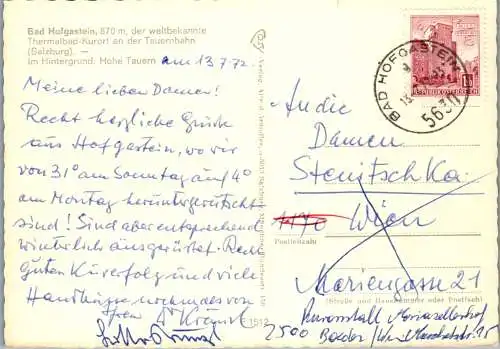 Bad Hofgastein, 870 m, der weltbekannte
Thermalbad-Kurort an der Tauernbahn
(Salzburg). –
Im Hintergrund: Hohe Tauern
am 13.7.72.
Meine lieben Damen!
Recht herzliche Grüße
aus Hofgastein, wo wir
von 31° am Sonntag auf 4°
am Montag heruntergerutscht
sind! Sind aber entsprechend
winterlich ausgerüstet. Recht
Guten Kurerfolg und viele
Handküsse nochmals von
Ihrem
BAD HOFGASTEIN
5630
REPUBLIK ÖSTERREICH
An die
Damen
1170 Wien
Postleitzahl
Mariengasse 21
(Straße und Hausnummer oder Postfach)
Kuranstalt
2500 Baden